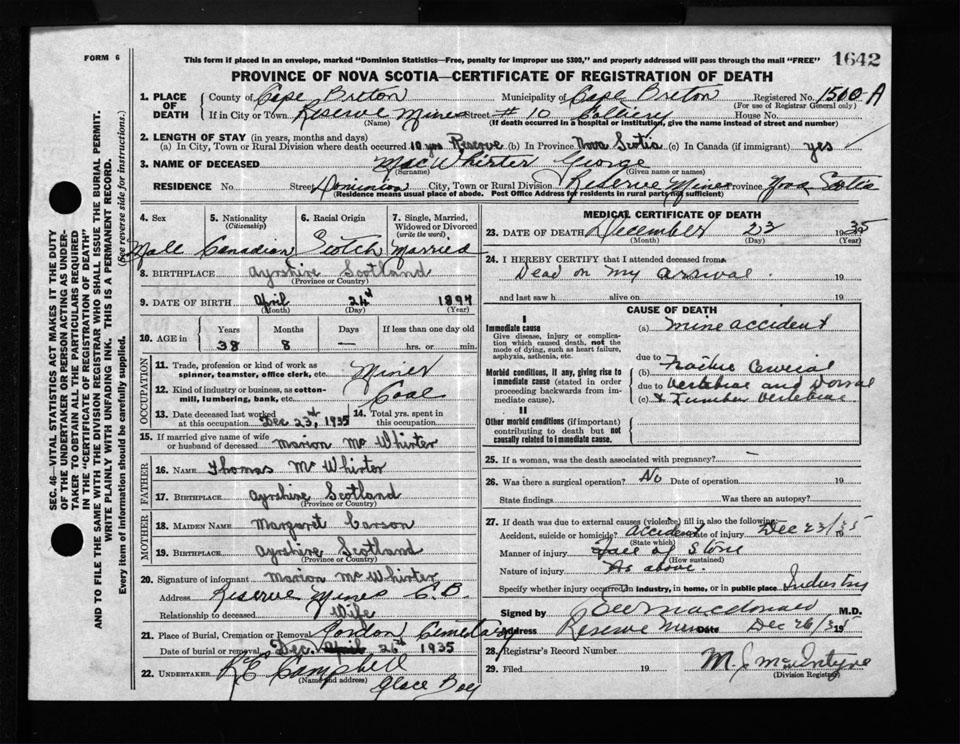 FORM 6
This form if placed in an envelope, marked "Dominion Statistics—Free, penalty for improper use $300," and properly addressed will pass through the mail "FREE"
1642
PROVINCE OF NOVA SCOTIA—CERTIFICATE OF REGISTRATION OF DEATH
1. PLACE OF DEATH
County of Cape Breton Municipality of Cape Breton Registered No. 1500-A
(For use of Registrar General only)
If in City or Town Reserve Mines Street # 10 Colliery House No.
(Name) (If death occurred in a hospital or institution, give the name instead of street and number)
2. LENGTH OF STAY (in years, months and days)
(a) In City, Town or Rural Division where death occurred 10 yrs Reserve (b) In Province Nova Scotia (c) In Canada (if immigrant) yes
3. NAME OF DECEASED MacWhirter George
(Surname) (Given name or names)
RESIDENCE No. Street Dominion City, Town or Rural Division Reserve Mines Province Nova Scotia
(Residence means usual place of abode. Post Office Address for residents in rural parts not sufficient)
4. Sex 5. Nationality (Citizenship) 6. Racial Origin 7. Single, Married, Widowed or Divorced (write the word)
Male Canadian Scotch Married
8. BIRTHPLACE Ayrshire Scotland
(Province or Country)
9. DATE OF BIRTH April 24th 1897
(Month) (Day) (Year)
10. AGE in Years Months Days If less than one day old
38 8 — hrs. or min.
OCCUPATION
11. Trade, profession or kind of work as spinner, teamster, office clerk, etc. Miner
12. Kind of industry or business, as cotton-mill, lumbering, bank, etc. Coal
13. Date deceased last worked at this occupation Dec 23rd, 1935 14. Total yrs. spent in this occupation
15. If married give name of wife or husband of deceased Marion Mc Whirter
FATHER
16. NAME Thomas Mc Whirter
17. BIRTHPLACE Ayrshire Scotland
(Province or Country)
MOTHER
18. MAIDEN NAME Margaret Carson
19. BIRTHPLACE Ayrshire Scotland
(Province or Country)
20. Signature of informant Marion Mc Whirter
Address Reserve Mines C.B.
Relationship to deceased Wife
21. Place of Burial, Cremation or Removal Gordon Cemetary
Date of burial or removal Dec. April 26th 1935
22. UNDERTAKER R E Campbell
(Name and address) Glace Bay
MEDICAL CERTIFICATE OF DEATH
23. DATE OF DEATH December 23 1935
(Month) (Day) (Year)
24. I HEREBY CERTIFY that I attended deceased from
Dead on my arrival 19
and last saw h alive on 19
CAUSE OF DEATH
I
Immediate cause
Give disease, injury or complication which caused death, not the mode of dying, such as heart failure, asphyxia, asthenia, etc.
(a) Mine accident
due to
Morbid conditions, if any, giving rise to immediate cause (stated in order proceeding backwards from immediate cause).
(b) Cervical
due to Vertebrae and Dorsal
(c) & Lumber vertebrae
II
Other morbid conditions (if important) contributing to death but not causally related to immediate cause.
25. If a woman, was the death associated with pregnancy? —
26. Was there a surgical operation? No Date of operation 19
State findings Was there an autopsy?
27. If death was due to external causes (violence) fill in also the following:
Accident, suicide or homicide? Accident Date of injury Dec 23/35 19
(State which)
Manner of injury Fall of Stone
(How sustained)
Nature of injury As above.
Specify whether injury occurred in industry, in home, or in public place Industry
Signed by Macdonald M.D.
Address Reserve Mines Date Dec 26/35 19
28. Registrar's Record Number
29. Filed 19 M. J. MacIntyre
(Division Registrar)
SEC. 46—VITAL STATISTICS ACT MAKES IT THE DUTY
OF THE UNDERTAKER OR PERSON ACTING AS UNDER-
TAKER TO OBTAIN ALL THE PARTICULARS REQUIRED
IN THE "CERTIFICATE OF REGISTRATION OF DEATH"
AND TO FILE THE SAME WITH THE DIVISION REGISTRAR WHO SHALL ISSUE THE BURIAL PERMIT.
WRITE PLAINLY WITH UNFADING INK. THIS IS A PERMANENT RECORD.
Every item of information should be carefully supplied. (See reverse side for instructions.)